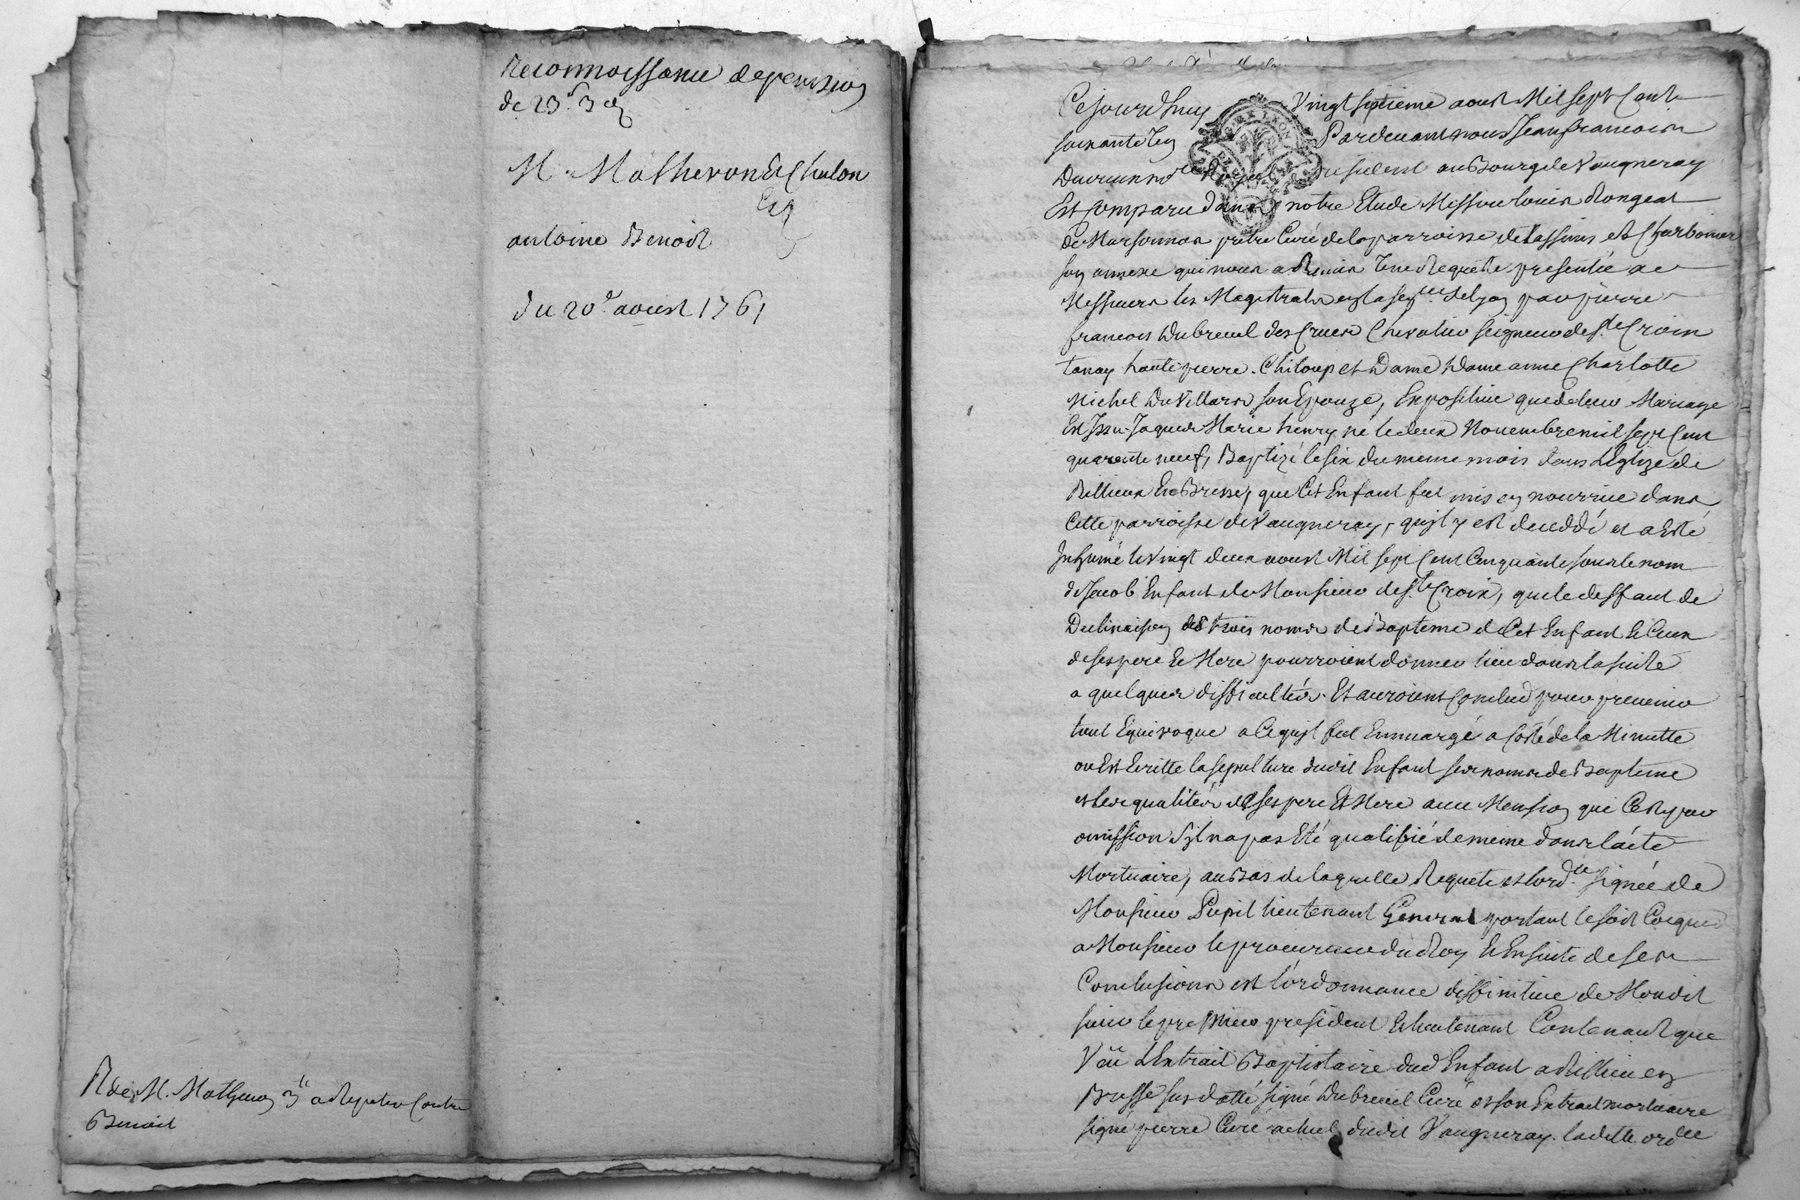 Reconnoissance de pension
de 23# 3
M. Matheron Et Chulon
Et
antoine Benoit
du 20e aoust 1761
R de M. Matheron 3# a Repeter Contre
Benoit
Cejourdhuy Vingt septieme aoust Mil sept Cent
soixante Par devant nous Jean francois
No.re Royal Resident au Bourg de Vaugneray
Est Comparu dans notre Etude Messire louis
de Marsonnas pretre Curé de la parroisse de Tassins et Charbonier
son annexe qui nous a Remis Une Requete presentée a
Messieurs les Magistrats en la sen.ée de lyon par pierre
francois Dubreuil des Crues Chevalier seigneur de S.te Croix
tanay haute pierre. Chiloup et Dame Dame anne Charlotte
Michel Du Villars son Epouze, Expositive que de leur Mariage
Est Issu Jaques Marie henry né le deux Novembre mil sept Cent
quarente neuf, Baptizé le six du meme mois dans L'Eglize de
Rillieux En Bresse, que Cet Enfant fut mis en nourrice dans
Cette parroisse de Vaugneray, quil y est deceddé et a Eté
Inhumé le Vingt deux aoust Mil sept Cent Cinquante sous le nom
de Jacob Enfant de Monsieur de S.te Croix, que le deffaut de
Declinaison des trois noms de Bapteme de Cet Enfant Et Ceux
de ses pere Et Mere pourroient donner lieu dans la suite
a quelques difficultés. Et auroient Conclud pour prevenir
tout Equivoque a Ce quil fut Enmargé a Coté de la Minutte
ou Est Ecritte la sepulture dudit Enfant ses noms de Bapteme
et les qualités de ses pere Et Mere avec Mension que C'est par
omission Sil na pas Eté qualifié de meme dans l'acte
Mortuaire, au Bas de laquelle Requete est lord.ce signée de
Monsieur Pupil lieutenant General portant le soit Communiqué
a Monsieur le procureur du Roy Et Ensuite de ses
Conclusions est l'ordonnance diffinitive de Mondit
sieur le premier president Et lieutenant Contenant que
Veu L'Extrait Baptistaire dud Enfant a Rillieu en
Bresse sus datté signé Dubreuil Curé et son Extrait mortuaire
signé pierre Curé actuel dudit Vaugneray. ladite ord.ce